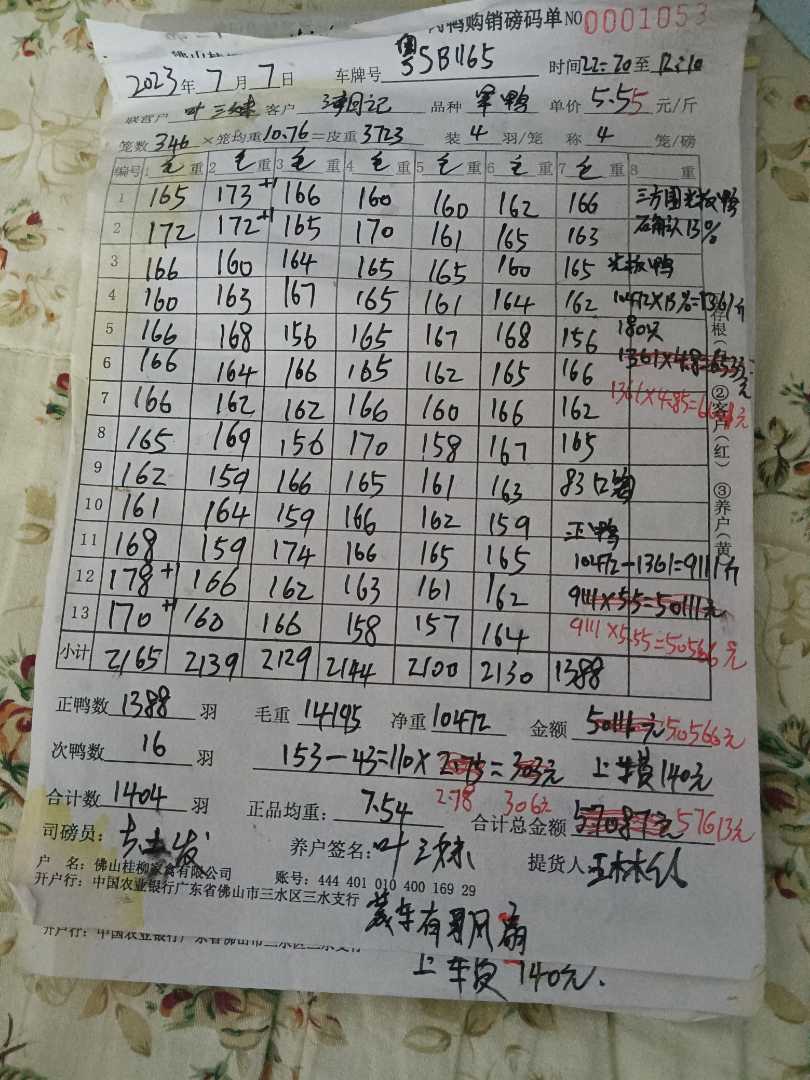 鸭购销磅码单 NO 0001053
2023年7月7日 车牌号 粤SB1165 时间22:20至
客户 品种 单价 5.55 元/斤
笼数 346 ×笼均重10.76=皮重3723 装 4 羽/笼 称 4 笼/磅
编号 1 毛 重 2 毛 重 3 毛 重 4 毛 重 5 毛 重 6 毛 重 7 毛 重 8 重
1 165 173+1 166 160 160 162 166 三方 光板鸭
2 172 172+1 165 170 161 165 163 石确认13%
3 166 160 164 165 165 160 165 光板鸭
4 160 163 167 165 161 164 162 10472×13%=1361斤
5 166 168 156 165 167 168 156 180只
6 166 164 166 165 162 165 166 1361×4.8=6533元
7 166 162 162 166 160 166 162 1361×4.85=
8 165 169 156 170 158 167 165
9 162 159 166 165 161 163 83
10 161 164 159 166 162 159 正鸭
11 168 159 174 166 165 165 10472-1361=9111斤
12 178+1 166 162 163 161 162 9111×5.5=50111元
13 170+1 160 166 158 157 164 9111×5.55=50566元
小计 2165 2139 2129 2144 2100 2130 1388
存根( ②客户(红) ③养户(黄
正鸭数 1388 羽 毛重 14195 净重 10472 金额 50111元 50566元
次鸭数 16 羽 153-43=110×2.75=303元 上车费140元
2.78 306元
合计数 1404 羽 正品均重: 7.54 合计总金额 57087元 57613元
司磅员: 养户签名:叶三妹 提货人
户 名: 佛山桂柳家禽有限公司 账号: 444 401 010 400 169 29
开户行: 中国农业银行广东省佛山市三水区三水支行
装车有 风扇
开户行: 中国农业银行广东省佛山市三水区三水支行
上车费140元.